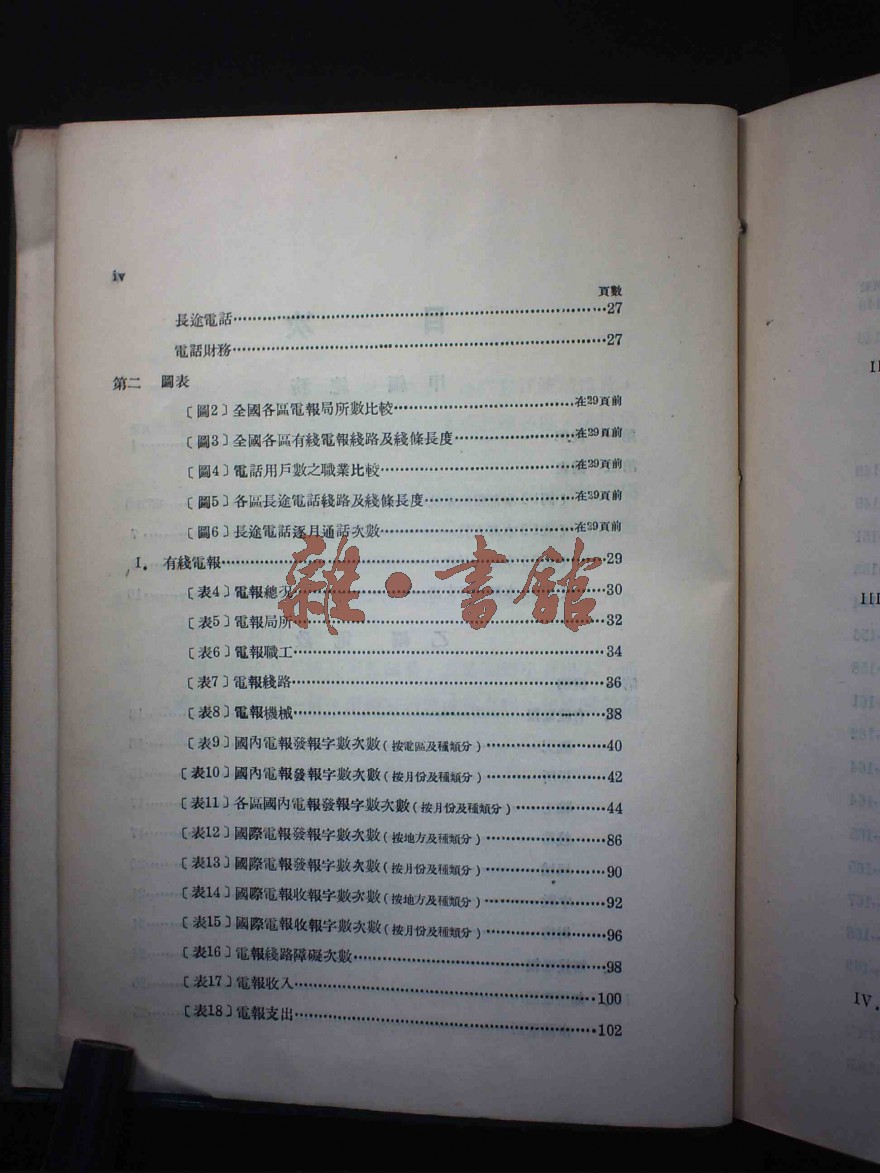 iv
頁數
長途電話……27
電話財務……27
第二 圖表
〔圖2〕全國各區電報局所數比較……在29頁前
〔圖3〕全國各區有綫電報綫路及綫條長度……在29頁前
〔圖4〕電話用戶數之職業比較……在29頁前
〔圖5〕各區長途電話綫路及綫條長度……在29頁前
〔圖6〕長途電話逐月通話次數……在29頁前
I. 有綫電報……29
〔表4〕電報總況……30
〔表5〕電報局所……32
〔表6〕電報職工……34
〔表7〕電報綫路……36
〔表8〕電報機械……38
〔表9〕國內電報發報字數次數(按電區及種類分)……40
〔表10〕國內電報發報字數次數(按月份及種類分)……42
〔表11〕各區國內電報發報字數次數(按月份及種類分)……44
〔表12〕國際電報發報字數次數(按地方及種類分)……86
〔表13〕國際電報發報字數次數(按月份及種類分)……90
〔表14〕國際電報收報字數次數(按地方及種類分)……92
〔表15〕國際電報收報字數次數(按月份及種類分)……96
〔表16〕電報綫路障礙次數……98
〔表17〕電報收入……100
〔表18〕電報支出……102
雜·書館
III
IV.